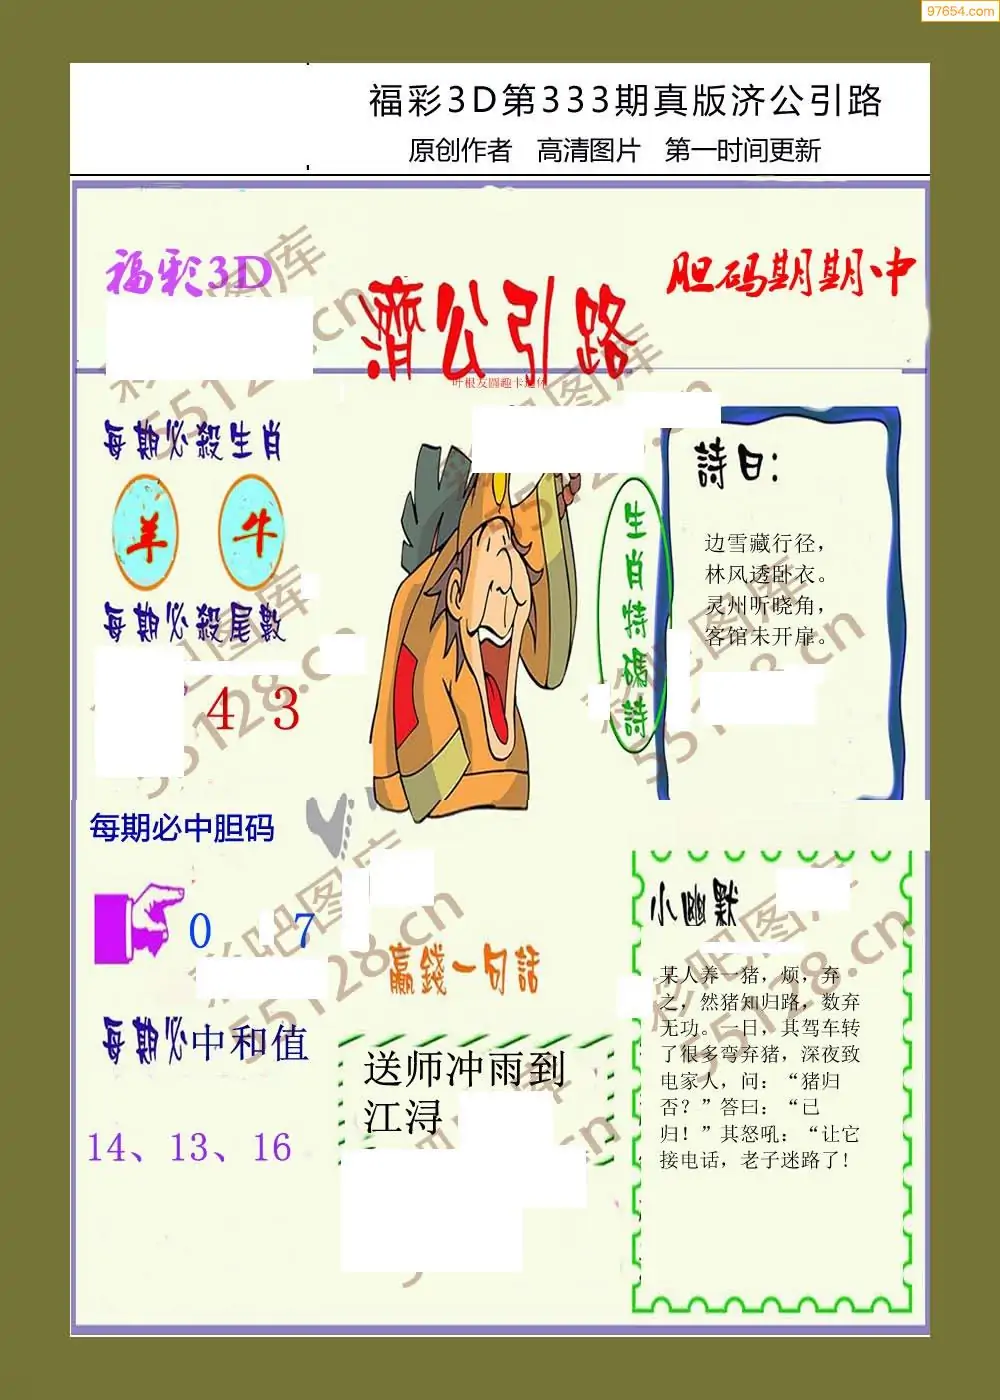 97654.com
福彩3D第333期真版济公引路
原创作者 高清图片 第一时间更新
福彩3D
胆码期期中
濟公引路
叶根友圆趣卡通体
每期必殺生肖
羊 牛
每期必殺尾數
4 3
生肖特碼詩
詩曰：
边雪藏行径，
林风透卧衣。
灵州听晓角，
客馆未开扉。
每期必中胆码
0 7
每期必中和值
14、13、16
贏錢一句話
送师冲雨到
江浔
小幽默
某人养一猪，烦，弃
之，然猪知归路，数弃
无功。一日，其驾车转
了很多弯弃猪，深夜致
电家人，问：“猪归
否？”答曰：“已
归！”其怒吼：“让它
接电话，老子迷路了！
彩吧图库
55128.cn